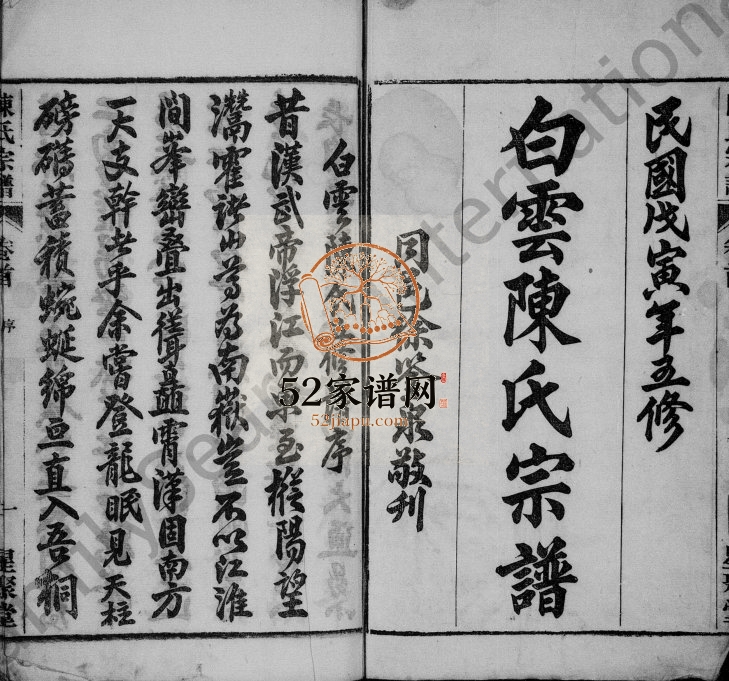 民國戊寅年五修
白雲陳氏宗譜
同邑徐 泉敬刊
白雲陳 五修 序
昔漢武帝浮江而東至樅陽望
灊霍諸山尊為南嶽豈不以江淮
間峯巒叠出聳矗霄漢固南方
一大支幹也乎余嘗登龍眠見天柱
磅礴蓄積蜿蜒綿亘直入吾桐
陳氏宗譜
卷首
序
一
星聚堂
52家谱网
52jiapu.com
FamilySearch International